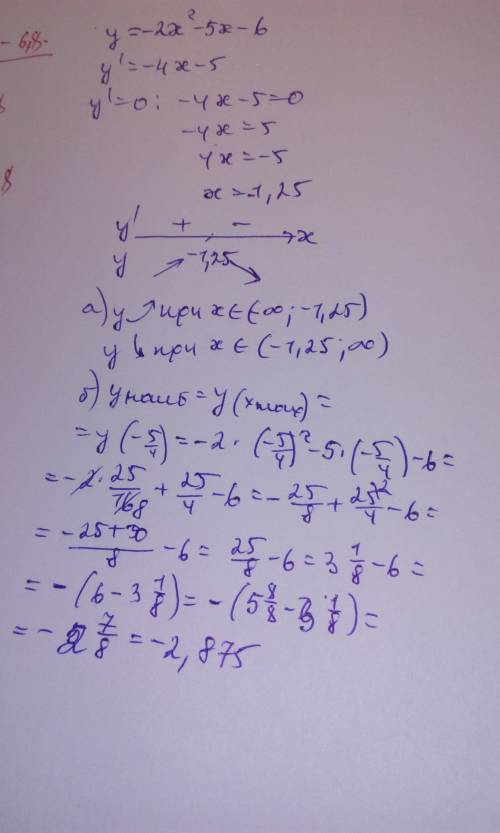 - 6,8 -
8
y = -2x² - 5x - 6
y' = -4x - 5
y' = 0: -4x - 5 = 0
-4x = 5
4x = -5
x = -1,25
y' + - x
y -1,25
а) y ↗ при x ∈ (-∞; -1,25)
y ↘ при x ∈ (-1,25; ∞)
б) y наиб = y(x max) =
= y(-5/4) = -2 · (-5/4)² - 5 · (-5/4) - 6 =
= -2 · 25/16 8 + 25/4 - 6 = -25/8 + 25/4 \2 - 6 =
= (-25+50)/8 - 6 = 25/8 - 6 = 3 1/8 - 6 =
= -(6 - 3 1/8) = -(5 8/8 - 3 1/8) =
= -2 7/8 = -2,875